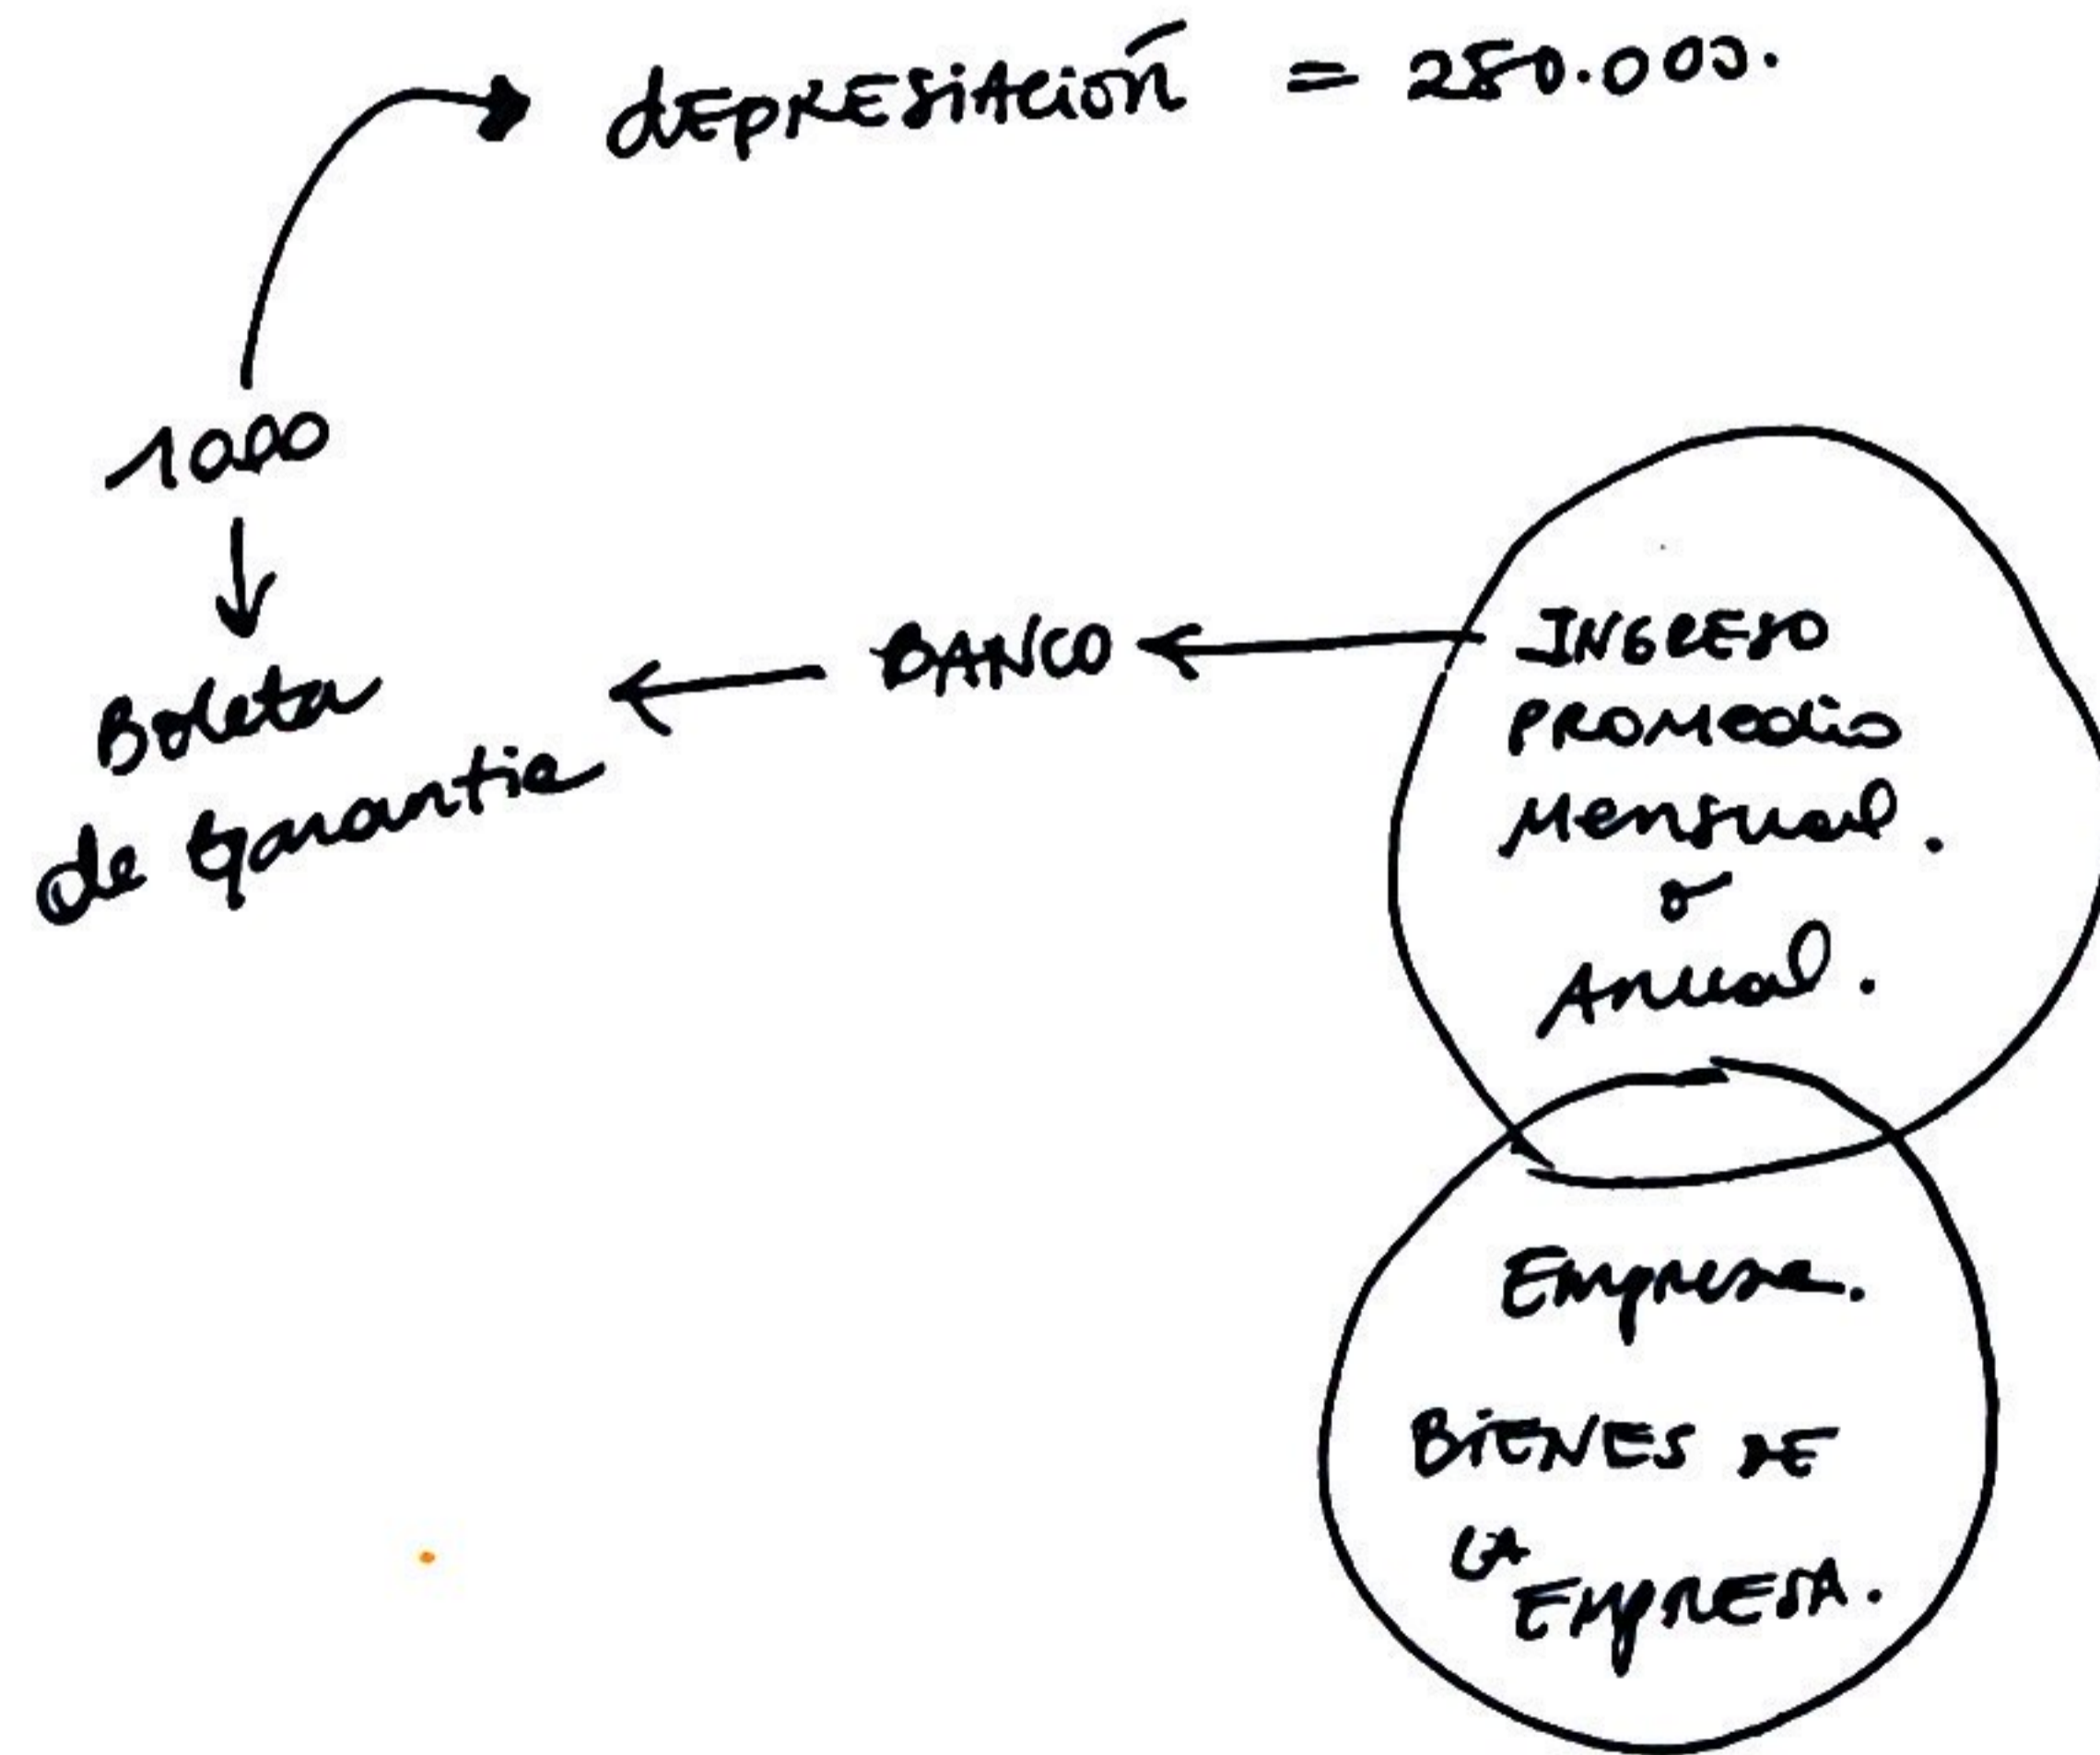 dEPRESiAción = 280.000.
1000
Boleta
de garantia
BANCO
INGRESO
PROMedio
Mensual.
o
Anual.
Empresa.
BiENES DE
LA
EMpRESA.